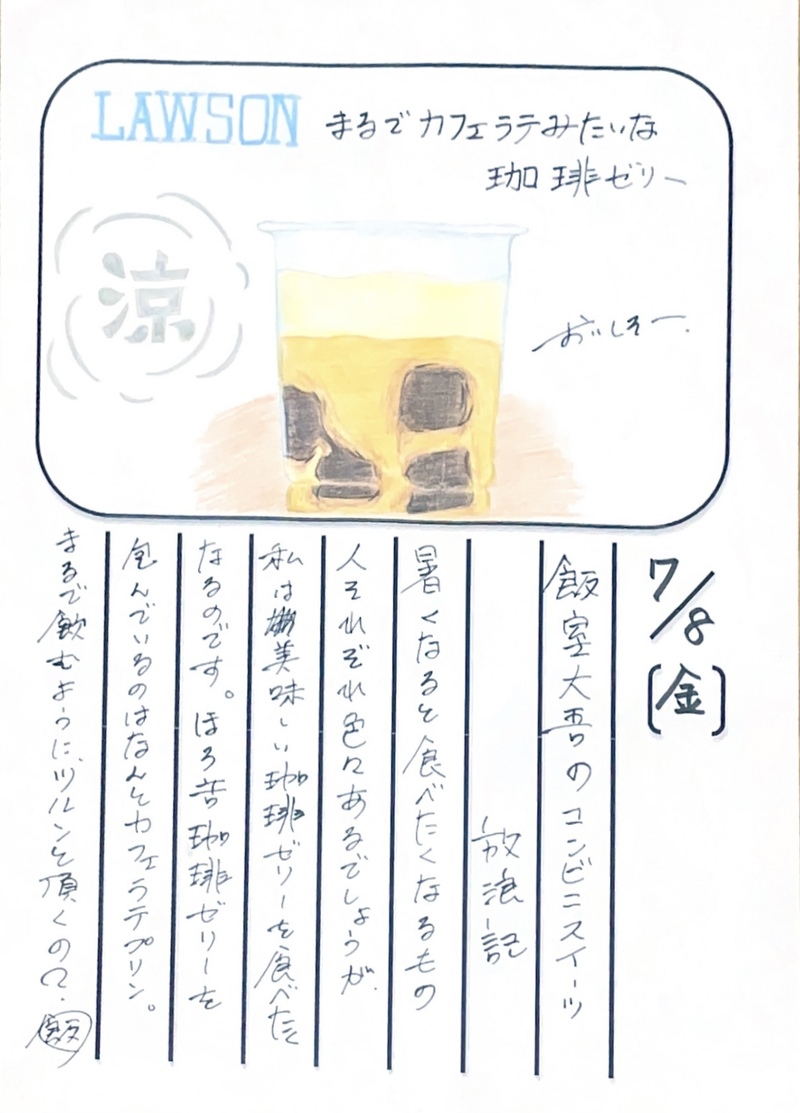 LAWSON
まるでカフェラテみたいな
珈琲ゼリー
涼
おいしそー.
7/8
[金]
飯室大吾のコンビニスイーツ
放浪記
暑くなると食べたくなるもの
人それぞれ色々あるでしょうが、
私は美味しい珈琲ゼリーを食べたく
なるのです。ほろ苦珈琲ゼリーを
包んでいるのはなんとカフェラテプリン。
まるで飲むように、ツルンと頂くの
飯